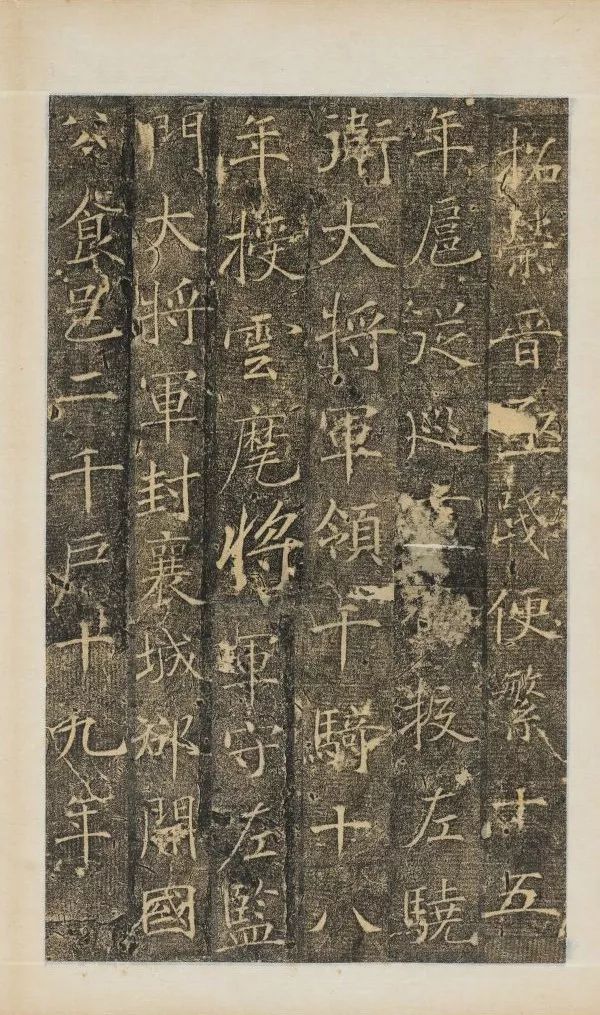 榮晉便繁十五
年扈從巡授左驍
衛大將軍領千騎十八
年授雲麾將軍守左監
門大將軍封襄城郡開國
公食邑二千戶十九年